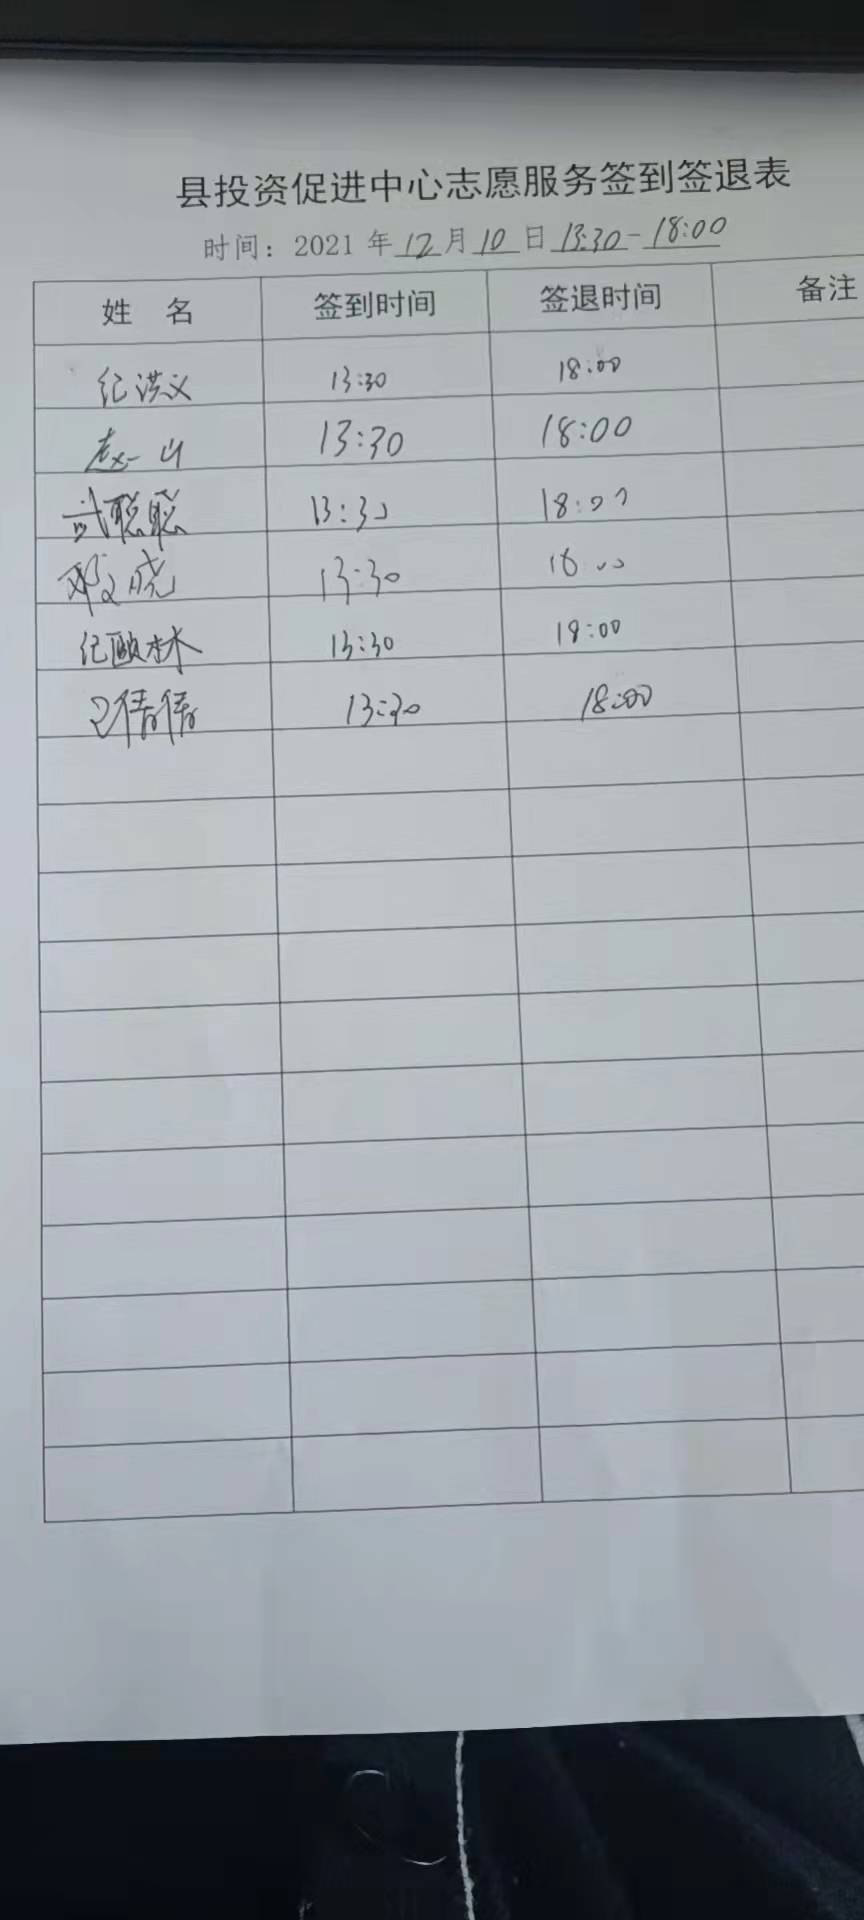 县投资促进中心志愿服务签到签退表
时间：2021年12月10日13:30-18:00
姓 名 签到时间 签退时间 备注
纪洪义 13:30 18:00
赵一山 13:30 18:00
武聪聪 13:30 18:00
邓文晓 13:30 18:00
纪颐林 13:30 18:00
卫倩倩 13:30 18:00